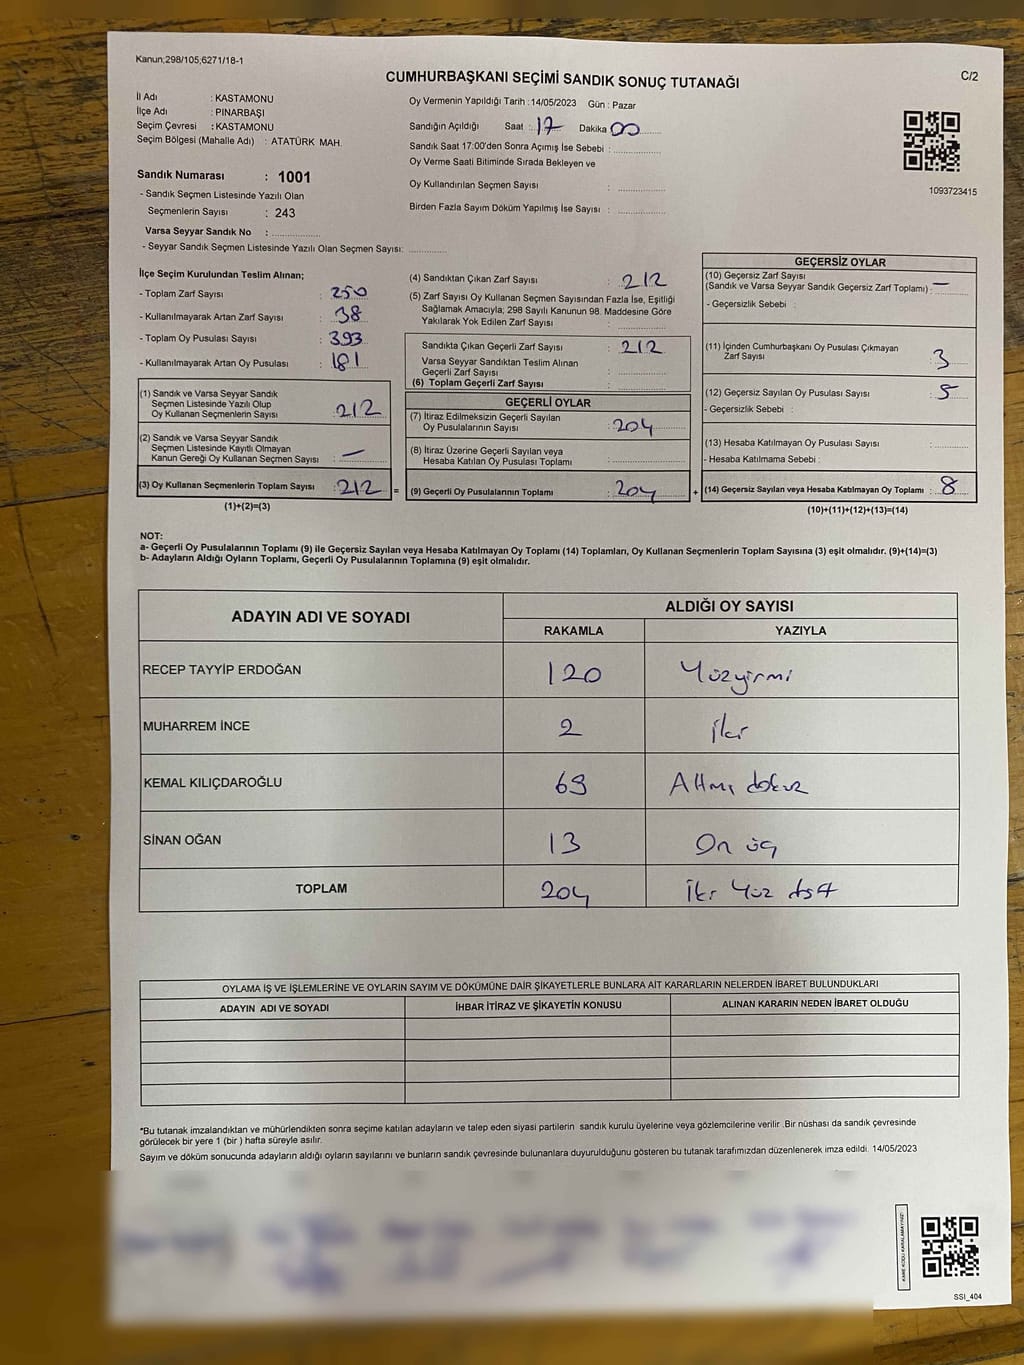 Kanun;298/105,6271/18-1
CUMHURBAŞKANI SEÇİMİ SANDIK SONUÇ TUTANAĞI
C/2
İl Adı : KASTAMONU
İlçe Adı : PINARBAŞI
Seçim Çevresi : KASTAMONU
Seçim Bölgesi (Mahalle Adı) : ATATÜRK MAH.
Oy Vermenin Yapıldığı Tarih : 14/05/2023 Gün : Pazar
Sandığın Açıldığı Saat : 17 Dakika 00
Sandık Saat 17:00'den Sonra Açımış İse Sebebi :
Oy Verme Saati Bitiminde Sırada Bekleyen ve
Oy Kullandırılan Seçmen Sayısı :
Birden Fazla Sayım Döküm Yapılmış İse Sayısı :
1093723415
Sandık Numarası : 1001
- Sandık Seçmen Listesinde Yazılı Olan
Seçmenlerin Sayısı : 243
Varsa Seyyar Sandık No :
- Seyyar Sandık Seçmen Listesinde Yazılı Olan Seçmen Sayısı:
İlçe Seçim Kurulundan Teslim Alınan;
- Toplam Zarf Sayısı : 250
- Kullanılmayarak Artan Zarf Sayısı : 38
- Toplam Oy Pusulası Sayısı : 393
- Kullanılmayarak Artan Oy Pusulası : 181
(1) Sandık ve Varsa Seyyar Sandık
Seçmen Listesinde Yazılı Olup
Oy Kullanan Seçmenlerin Sayısı : 212
(2) Sandık ve Varsa Seyyar Sandık
Seçmen Listesinde Kayıtlı Olmayan
Kanun Gereği Oy Kullanan Seçmen Sayısı : —
(3) Oy Kullanan Seçmenlerin Toplam Sayısı : 212 =
(1)+(2)=(3)
(4) Sandıktan Çıkan Zarf Sayısı : 212
(5) Zarf Sayısı Oy Kullanan Seçmen Sayısından Fazla İse, Eşitliği
Sağlamak Amacıyla; 298 Sayılı Kanunun 98. Maddesine Göre
Yakılarak Yok Edilen Zarf Sayısı :
Sandıkta Çıkan Geçerli Zarf Sayısı : 212
Varsa Seyyar Sandıktan Teslim Alınan
Geçerli Zarf Sayısı :
(6) Toplam Geçerli Zarf Sayısı :
GEÇERLİ OYLAR
(7) İtiraz Edilmeksizin Geçerli Sayılan
Oy Pusulalarının Sayısı : 204
(8) İtiraz Üzerine Geçerli Sayılan veya
Hesaba Katılan Oy Pusulası Toplamı :
(9) Geçerli Oy Pusulalarının Toplamı : 204 +
GEÇERSİZ OYLAR
(10) Geçersiz Zarf Sayısı
(Sandık ve Varsa Seyyar Sandık Geçersiz Zarf Toplamı) : —
- Geçersizlik Sebebi :
(11) İçinden Cumhurbaşkanı Oy Pusulası Çıkmayan
Zarf Sayısı : 3
(12) Geçersiz Sayılan Oy Pusulası Sayısı : 5
- Geçersizlik Sebebi :
(13) Hesaba Katılmayan Oy Pusulası Sayısı :
- Hesaba Katılmama Sebebi :
(14) Geçersiz Sayılan veya Hesaba Katılmayan Oy Toplamı : 8
(10)+(11)+(12)+(13)=(14)
NOT:
a- Geçerli Oy Pusulalarının Toplamı (9) ile Geçersiz Sayılan veya Hesaba Katılmayan Oy Toplamı (14) Toplamları, Oy Kullanan Seçmenlerin Toplam Sayısına (3) eşit olmalıdır. (9)+(14)=(3)
b- Adayların Aldığı Oyların Toplamı, Geçerli Oy Pusulalarının Toplamına (9) eşit olmalıdır.
ADAYIN ADI VE SOYADI
ALDIĞI OY SAYISI
RAKAMLA YAZIYLA
RECEP TAYYİP ERDOĞAN 120 Yüzyirmi
MUHARREM İNCE 2 İki
KEMAL KILIÇDAROĞLU 69 Altmı dokuz
SİNAN OĞAN 13 On üç
TOPLAM 204 İki Yüz dört
OYLAMA İŞ VE İŞLEMLERİNE VE OYLARIN SAYIM VE DÖKÜMÜNE DAİR ŞİKAYETLERLE BUNLARA AİT KARARLARIN NELERDEN İBARET BULUNDUKLARI
ADAYIN ADI VE SOYADI İHBAR İTİRAZ VE ŞİKAYETİN KONUSU ALINAN KARARIN NEDEN İBARET OLDUĞU
*Bu tutanak imzalandıktan ve mühürlendikten sonra seçime katılan adayların ve talep eden siyasi partilerin sandık kurulu üyelerine veya gözlemcilerine verilir .Bir nüshası da sandık çevresinde
görülecek bir yere 1 (bir ) hafta süreyle asılır.
Sayım ve döküm sonucunda adayların aldığı oyların sayılarını ve bunların sandık çevresinde bulunanlara duyurulduğunu gösteren bu tutanak tarafımızdan düzenlenerek imza edildi. 14/05/2023
KARE KODU KARALAMAYINIZ!
SSI_404